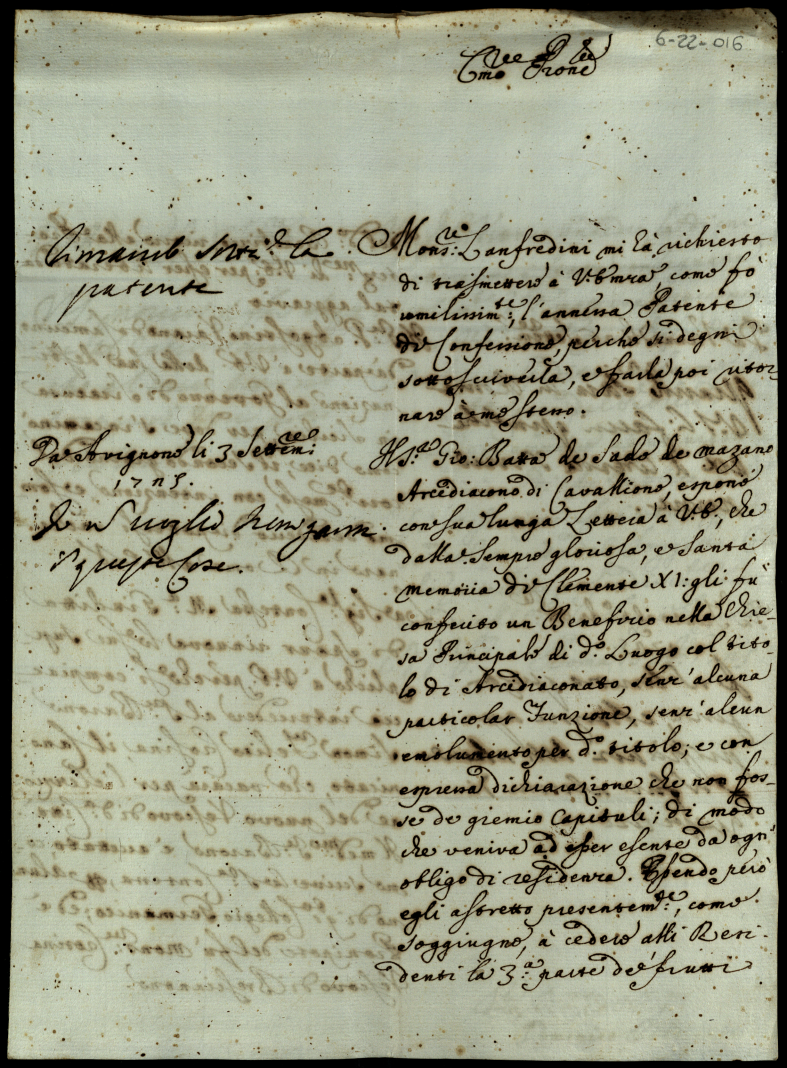 6-22-016
Em̃o Prone
Rimando sott.ª la
patente
Mons:re Lanfredini mi hà richiesto
di trasmettere à V: Em̃za, come fò
umilissim:te, l'annessa Patente
di Confessione, perche si degni
sottoscriverla, e farla poi ritor-
nare à me stesso.
Da Avignone li 3 Settem:re
Il S:r Gio: Batta de Sade de Mazano
Arcidiacono di Cavallione, espone
con sua lunga Lettera à V: E, che
dalla sempre gloriosa, e Santa
memoria di Clemente XI: gli fù
conferito un Beneficio nella Chie-
sa Principale di d:o Luogo col tito-
lo di Arcidiaconato, senz' alcuna
particolar Funzione, senz' alcun
emolumento per d:o titolo; e con
espressa dichiarazione che non fos-
se de gremio Capituli; di modo
che veniva ad esser esente da ogn'
obligo di residenza. Essendo però
egli astretto presentem:te, come
soggiugne, à cedere alli Resi
denti la 3:a parte de' frutti